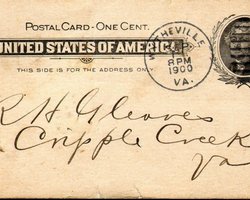 POSTAL CARD - ONE CENT.
UNITED STATES OF AMERICA.
THIS SIDE IS FOR THE ADDRESS ONLY.
WYTHEVILLE
8PM
1900
VA.
R H Gleaves
Cripple Creek
Va